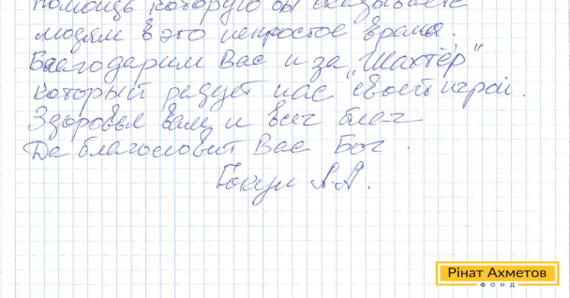 помощь которую вы оказываете
людям в это непростое время.
Благодарим Вас и за "Шахтёр"
который радует нас своей игрой.
Здоровья вам и всех благ
Да благословит Вас Бог.
А.А.
Рінат Ахметов
ФОНД